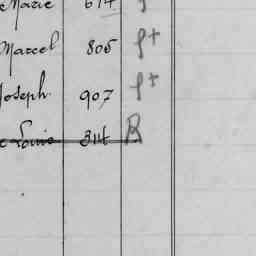 Marie 614
Marcel 806 J+
Joseph 907 J+
e Louis 314 R